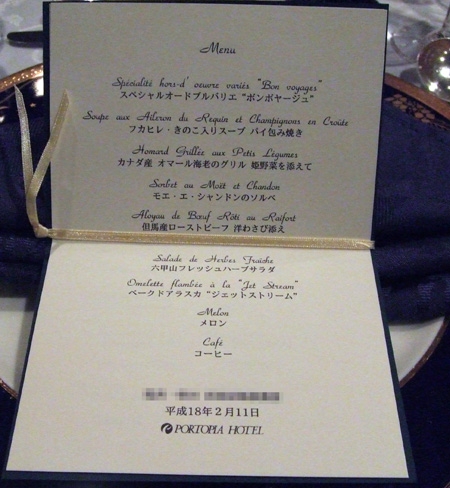 Menu
Spécialité hors-d' oeuvre variés "Bon voyages"
スペシャルオードブルバリエ "ボンボヤージュ"
Soupe aux Aileron du Requin et Champignons en Croûte
フカヒレ・きのこ入りスープ パイ包み焼き
Homard Grillés aux Petis Légumes
カナダ産 オマール海老のグリル 姫野菜を添えて
Sorbet au Moët et Chandon
モエ・エ・シャンドンのソルベ
Aloyau de Bœuf Rôti au Raifort
但馬産ローストビーフ 洋わさび添え
Salade de Herbes Fraîche
六甲山フレッシュハーブサラダ
Omelette flambée à la "Jet Stream"
ベークドアラスカ "ジェットストリーム"
Melon
メロン
Café
コーヒー
平成18年2月11日
PORTOPIA HOTEL